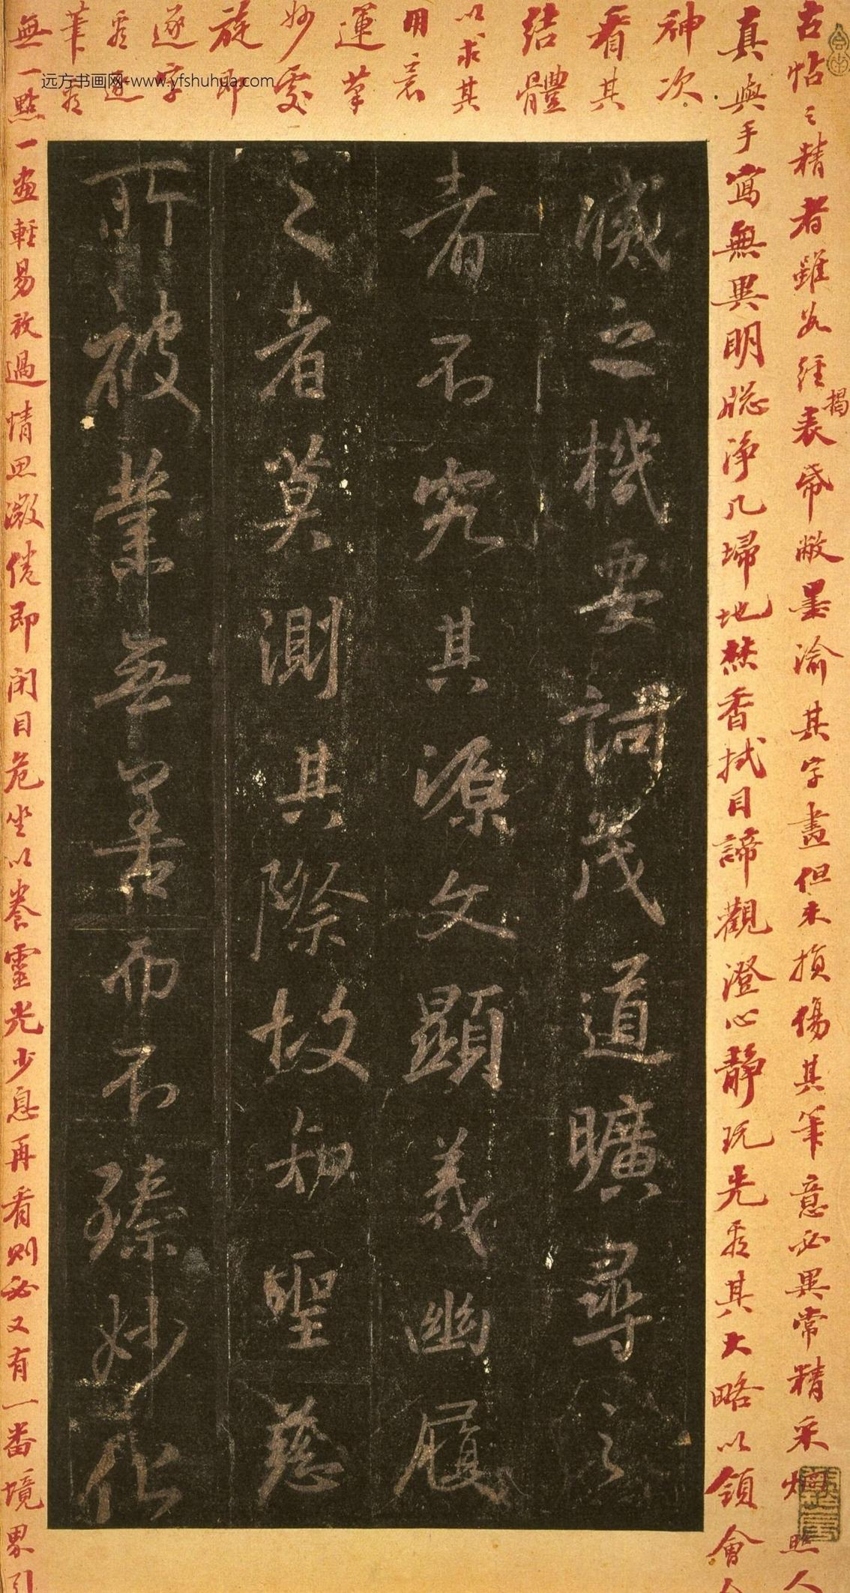 古帖之精者雖經揭表帋敝墨渝其字畫但未損傷其筆意必異常精采照人
真與手寫無異明牕淨几埽地焚香拭目諦觀澄心靜玩先看其大略以領會
神次
看其
結體
以求其
用意
運筆
妙處
旋即
逐字
看逐
筆看
無一點一畫輕易放過情思微倦即閉目危坐以養靈光少息再看則必又有一番境界引
滅之機要詞茂道曠尋之
者不究其源文顯義幽履
之者莫測其際故知聖慈
所被業無善而不臻妙化
远方书画网-www.yfshuhua.com